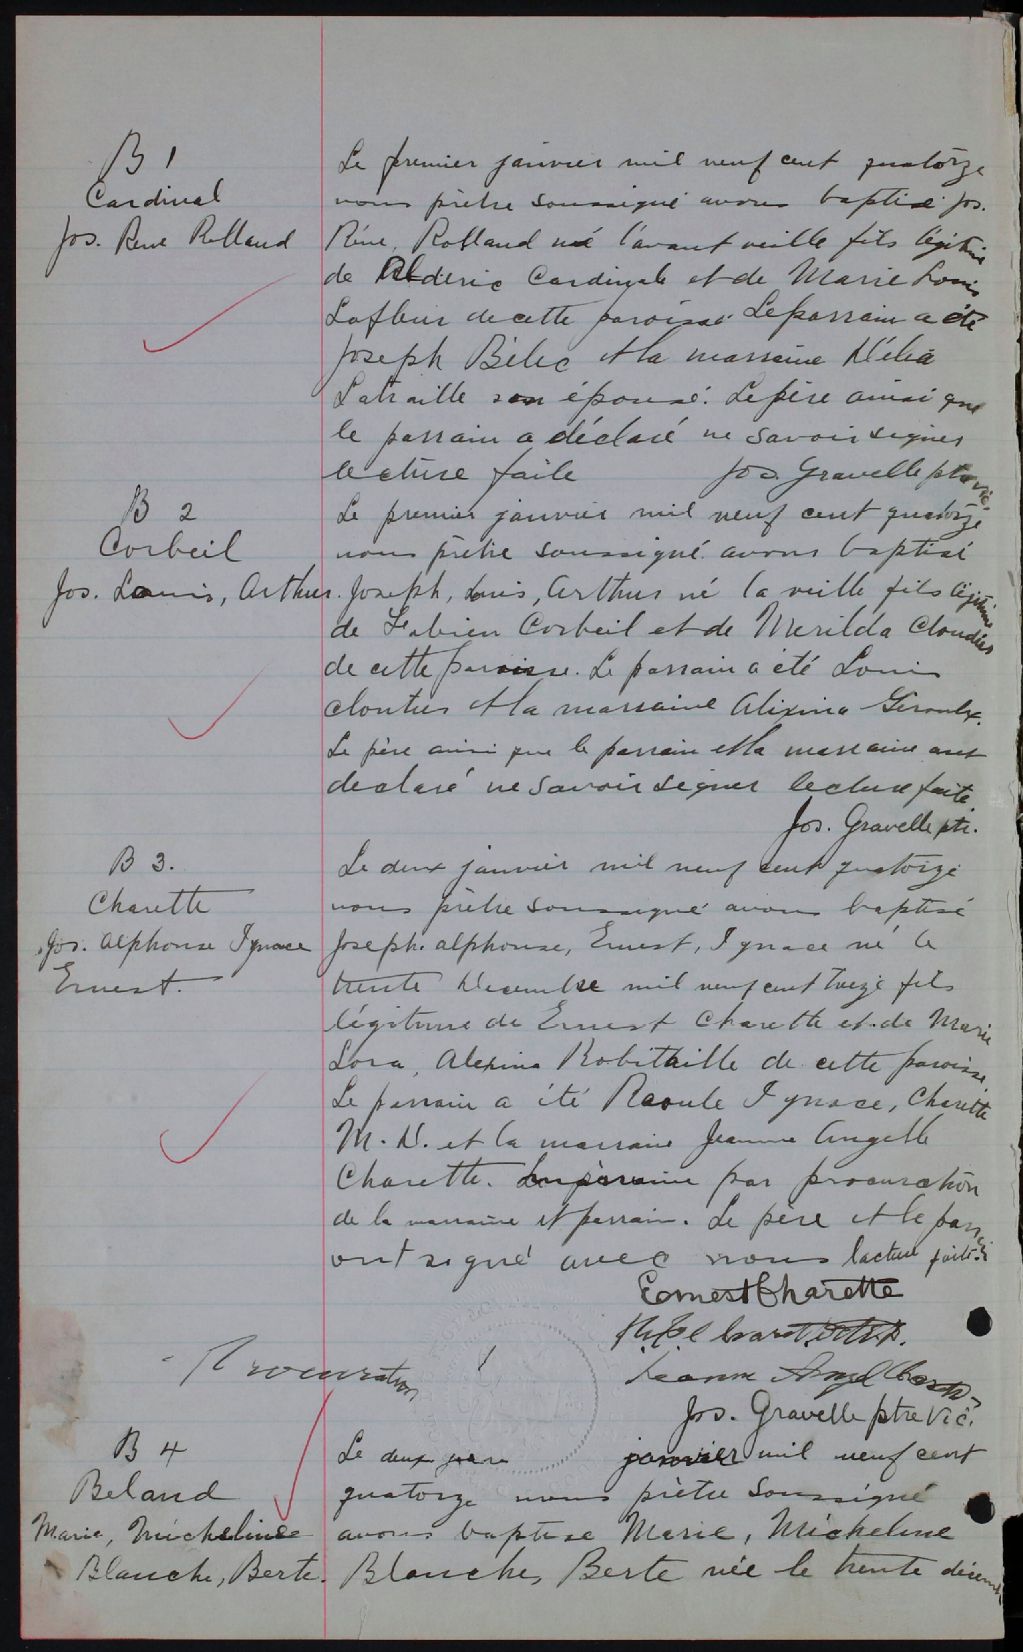 B 1
Cardinal
Jos. Rene Rolland
Le premier janvier mil neuf cent quatorze
nous prêtre soussigné avons baptisé Jos.
Réne, Rolland né l'avant veille fils légitime
de Alderic Cardinal et de Marie Louis
Lafleur de cette paroisse. Le parrain a été
Joseph Bélec et la marraine Délia
Latraille son épouse. Le père ainsi que
le parrain a déclaré ne savoir signer
lecture faite Jos. Gravelle ptre vic.
B 2
Corbeil
Jos. Louis, Arthur.
Le premier janvier mil neuf cent quatorze
nous prêtre soussigné avons baptisé
Joseph, Louis, Arthur né la veille fils légitime
de Fabien Corbeil et de Merilda Cloutier
de cette paroisse. Le parrain a été Louis
cloutier et la marraine Alixina Giroulx.
Le père ainsi que le parrain et la marraine ont
declaré ne savoir signer lecture faite.
Jos. Gravelle ptr.
B 3.
Charette
Jos. Alphonse Ignace
Ernest.
Le deux janvier mil neuf cent quatorze
nous prêtre soussigné avons baptisé
Joseph. alphonse, Ernest, Ignace né le
trente Decembre mil neuf cent treize fils
légitime de Ernest Charette et de Marie
Lora, Alexina Robitaille de cette paroisse.
Le parrain a été Raoule Ignace, Charette
M. D. et la marraine Jeanne Angelle
Charette. par procuration
de la marraine et parrain. Le père et le parrain
ont signé avec nous lecture faite.
Ernest Charette
Jeanne
Jos. Gravelle ptre Vic.
Procuration
B 4
Beland
Marie, Micheline
Blanche, Berte.
Le deux janvier mil neuf cent
quatorze nous prêtre soussigné
avons baptise Marie, Micheline
Blanche, Berte née le trente décembre